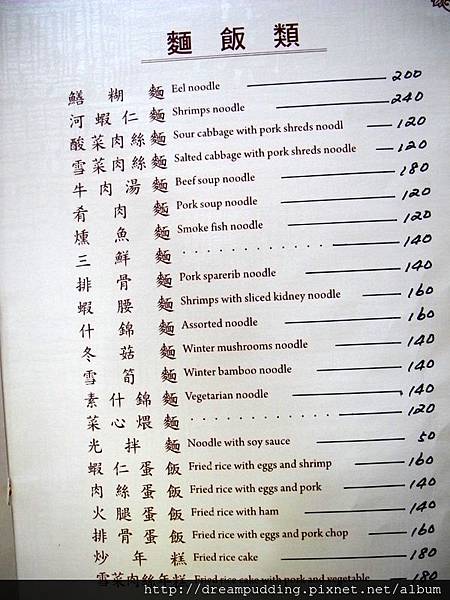 麵 飯 類
鱔糊麵 Eel noodle 200
河蝦仁麵 Shrimps noodle 240
酸菜肉絲麵 Sour cabbage with pork shreds noodl 120
雪菜肉絲麵 Salted cabbage with pork shreds noodle 120
牛肉湯麵 Beef soup noodle 180
肴肉麵 Pork soup noodle 120
燻魚麵 Smoke fish noodle 120
三鮮麵 140
排骨麵 Pork sparerib noodle 140
蝦腰麵 Shrimps with sliced kidney noodle 160
什錦麵 Assorted noodle 160
冬菇麵 Winter mushrooms noodle 140
雪筍麵 Winter bamboo noodle 140
素什錦麵 Vegetarian noodle 140
菜心煨麵 120
光拌麵 Noodle with soy sauce 50
蝦仁蛋飯 Fried rice with eggs and shrimp 160
肉絲蛋飯 Fried rice with eggs and pork 140
火腿蛋飯 Fried rice with ham 140
排骨蛋飯 Fried rice with eggs and pork chop 160
炒年糕 Fried rice cake 180
雪菜肉絲年糕 Fried rice cake with pork and vegetable 180
http://dreampudding.pixnet.net/album